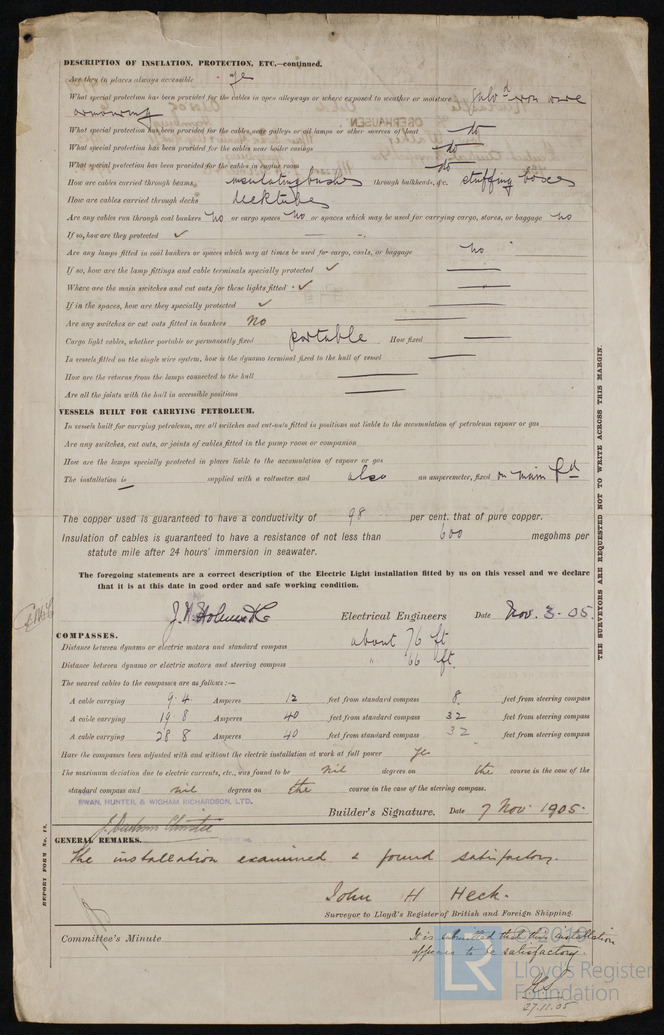 DESCRIPTION OF INSULATION, PROTECTION, ETC.—continued.
Are they in places always accessible yes
What special protection has been provided for the cables in open alleyways or where exposed to weather or moisture galvd iron wire
armouring
What special protection has been provided for the cables near galleys or oil lamps or other sources of heat do
What special protection has been provided for the cables near boiler casings do
What special protection has been provided for the cables in engine room do
How are cables carried through beams, insulating bushes through bulkheads, &c. stuffing boxes
How are cables carried through decks deck tubes
Are any cables run through coal bunkers no or cargo spaces no or spaces which may be used for carrying cargo, stores, or baggage no
If so, how are they protected ✓
Are any lamps fitted in coal bunkers or spaces which may at times be used for cargo, coals, or baggage no
If so, how are the lamp fittings and cable terminals specially protected ✓
Where are the main switches and cut outs for these lights fitted ✓
If in the spaces, how are they specially protected ✓
Are any switches or cut outs fitted in bunkers no
Cargo light cables, whether portable or permanently fixed portable How fixed
In vessels fitted on the single wire system, how is the dynamo terminal fixed to the hull of vessel
How are the returns from the lamps connected to the hull
Are all the joints with the hull in accessible positions
VESSELS BUILT FOR CARRYING PETROLEUM.
In vessels built for carrying petroleum, are all switches and cut-outs fitted in positions not liable to the accumulation of petroleum vapour or gas
Are any switches, cut outs, or joints of cables fitted in the pump room or companion
How are the lamps specially protected in places liable to the accumulation of vapour or gas
The installation is supplied with a voltmeter and also an amperemeter, fixed on main Bd
The copper used is guaranteed to have a conductivity of 98 per cent. that of pure copper.
Insulation of cables is guaranteed to have a resistance of not less than 600 megohms per
statute mile after 24 hours' immersion in seawater.
The foregoing statements are a correct description of the Electric Light installation fitted by us on this vessel and we declare
that it is at this date in good order and safe working condition.
J. H. Holmes & Co Electrical Engineers Date Nov. 3. 05.
COMPASSES.
Distance between dynamo or electric motors and standard compass about 76 ft
Distance between dynamo or electric motors and steering compass " 66 ft.
The nearest cables to the compasses are as follows:—
A cable carrying 9.4 Amperes 12 feet from standard compass 8 feet from steering compass
A cable carrying 19.8 Amperes 40 feet from standard compass 32 feet from steering compass
A cable carrying 28.8 Amperes 40 feet from standard compass 32 feet from steering compass
Have the compasses been adjusted with and without the electric installation at work at full power yes
The maximum deviation due to electric currents, etc., was found to be nil degrees on the course in the case of the
standard compass and nil degrees on the course in the case of the steering compass.
SWAN, HUNTER, & WIGHAM RICHARDSON, LTD.
Builder's Signature. Date 7 Nov. 1905.
GENERAL REMARKS.
The installation examined & found satisfactory.
John H Heck.
Surveyor to Lloyd's Register of British and Foreign Shipping.
Committee's Minute
It is submitted that this installation
appears to be satisfactory.
27.11.05
THE SURVEYORS ARE REQUESTED NOT TO WRITE ACROSS THIS MARGIN.
REPORT FORM No. 13.
LR
© 2019
Lloyd's Register
Foundation